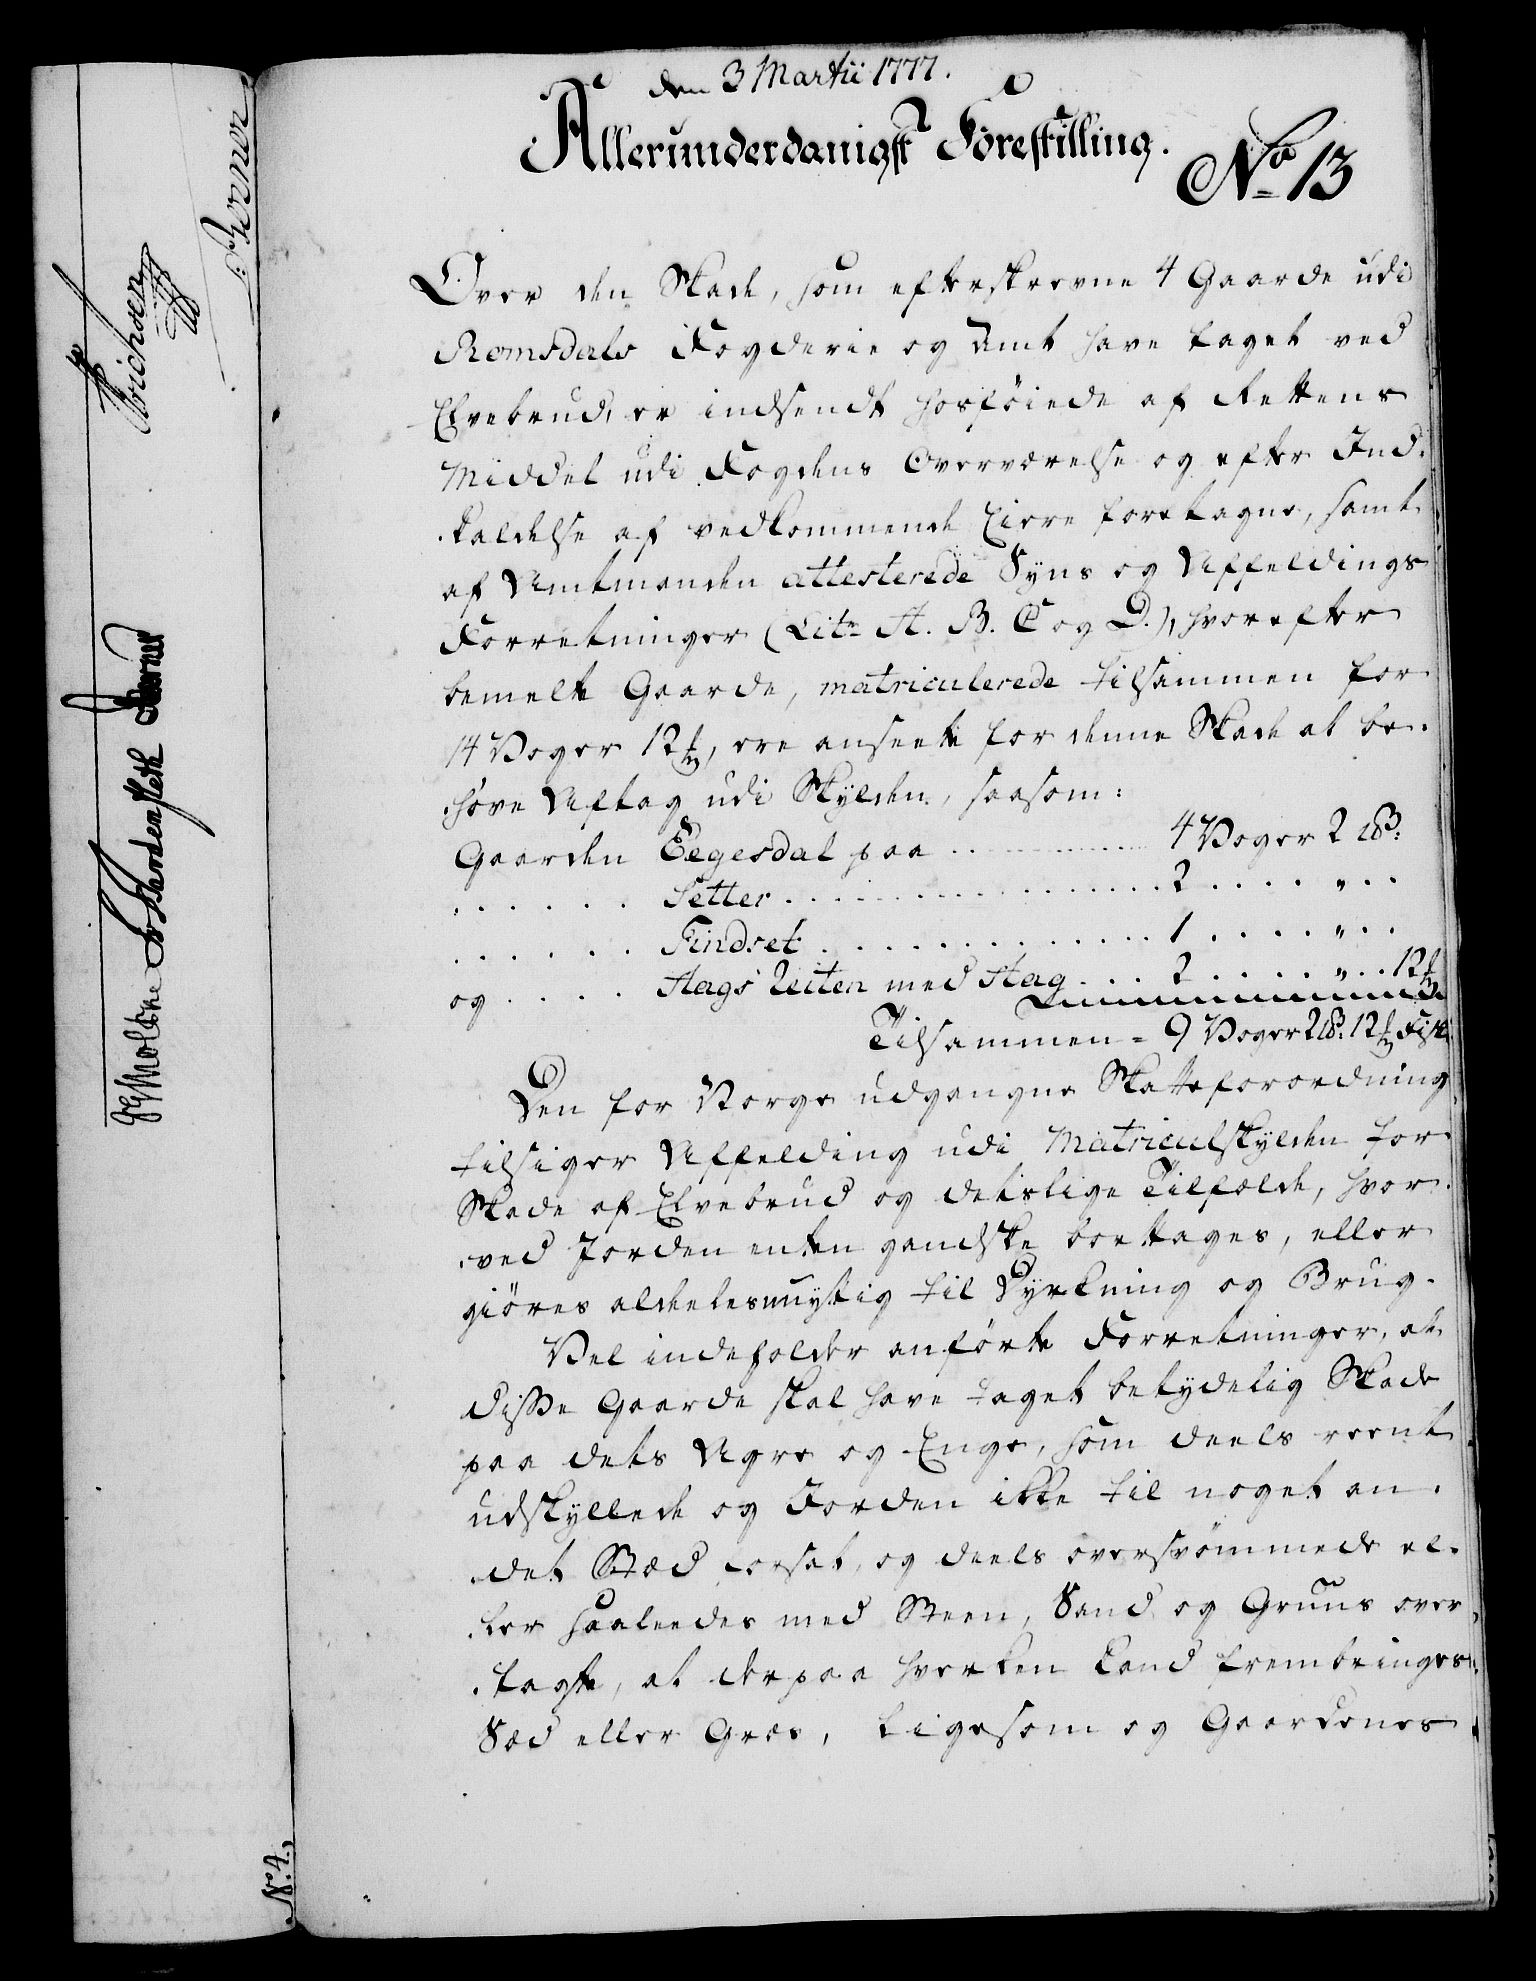 den 3 Martii 1777.
Allerunderdanigst Forestilling.
No 13
Over den Skade, som efterskrevne 4 Gaarde udi
Romsdals Fogderie og Amt have taget ved
Elvebrud, er indsendt hosföiede af Rettens
Middel udi Fogdens Overværelse og efter Ind-
kaldelse af vedkommende Eiere foretagne, samt
af Amtmanden attesterede Syns og Affældings
Forretninger (Litr A. B. C og D.), hvorefter
bemelte Gaarde, matriculerede tilsammen for
14 Voger 12 ℔, ere anseete for denne Skade at be-
höve Aftag udi Skylden, saasom:
Gaarden Eegesdal paa . . . . . 4 Voger 2 pd:
. . . . . . Setter . . . . . . . . . . . 2 . . . . " . .
. . . . . . Findset . . . . . . . . . . 1 . . . . " . .
og . . . . Aags Leiten med Aag . . . 2 . . . . " . . 12 ℔
Tilsammen = 9 Voger 2 pd. 12 ℔ Fisk.
Den for Norge udgangne Skatteforordning
tilsiger Affælding udi Matriculskylden for
Skade af Elvebrud og deslige Tilfælde, hvor-
ved Jorden enten gandske borttages, eller
giöres aldeles unyttig til Dyrkning og Brug.
Vel indeholder anförte Forretninger, at
disse Gaarde skal have taget betydelig Skade
paa dets Agre og Enge, som deels reent
udskyllede og Jorden ikke til noget an-
det Stæd forsat, og deels oversvömmede el-
ler saaleedes med Steen, Sand og Gruus over-
lagte, at derpaa hverken kand frembringes
Sæd eller Græs, ligesom og Gaardenes
JG Moltke
Scheel
Erichsen
No. 4.